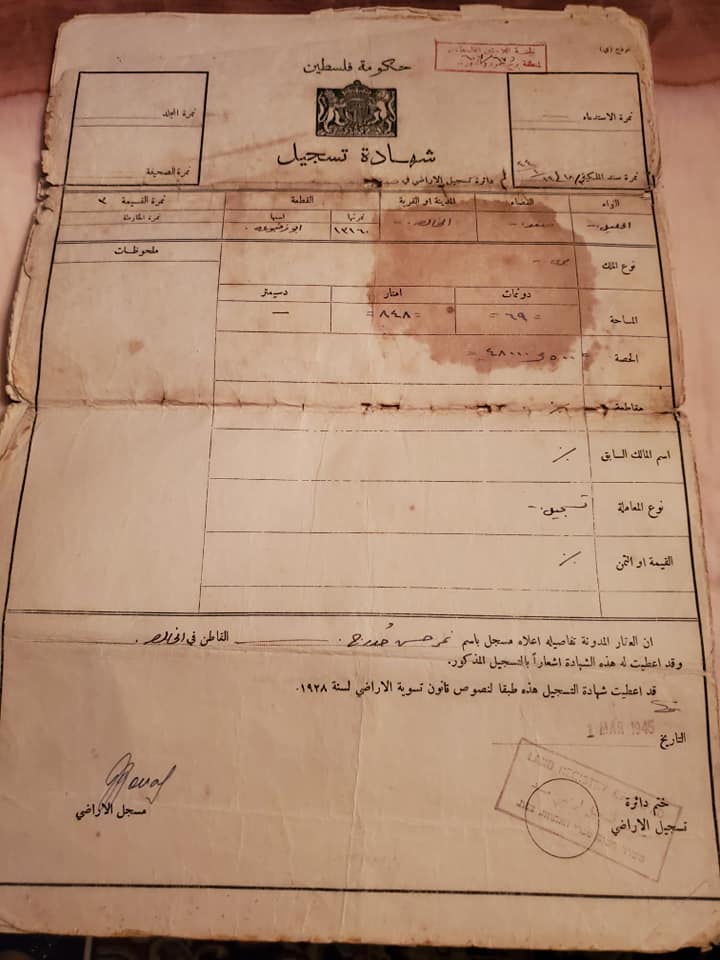 نموذج (ي)
حكومة فلسطين
نمرة الاستدعاء
نمرة المجلد
شهادة تسجيل
نمرة الصحيفة
دائرة تسجيل الاراضي في صفد
اللواء
القضاء
المدينة او القرية
القطعة
نمرة القسيمة ٣
نمرتها
اسمها
نمرة الخارطة
الجليل
صفد
الخالصة
١٣١٦٠
نوع الملك
ملحوظات
دونمات
امتار
دسيمتر
المساحة
= ٦٩ =
= ٨٤٨ =
—
الحصة
مقاطعة
اسم المالك السابق ./.
نوع المعاملة تسجيل
القيمة او الثمن ./.
ان العقار المدونة تفاصيله اعلاه مسجل باسم نمر حسن القاطن في الخالصة
وقد اعطيت له هذه الشهادة اشعاراً بالتسجيل المذكور.
قد اعطيت شهادة التسجيل هذه طبقا لنصوص قانون تسوية الاراضي لسنة ١٩٢٨.
التاريخ 1 MAR 1945
LAND REGISTRY
ختم دائرة
تسجيل الاراضي
مسجل الاراضي